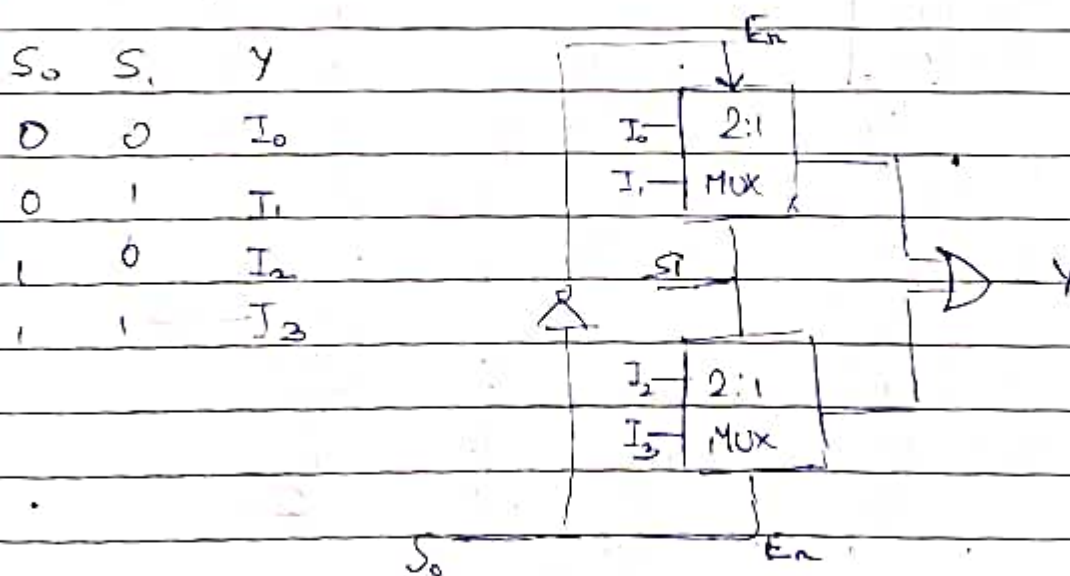 En
S₀ S₁ Y
0 0 I₀
0 1 I₁
1 0 I₂
1 1 I₃
I₀ 2:1
I₁ MUX
S1
Y
I₂ 2:1
I₃ MUX
S₀ En